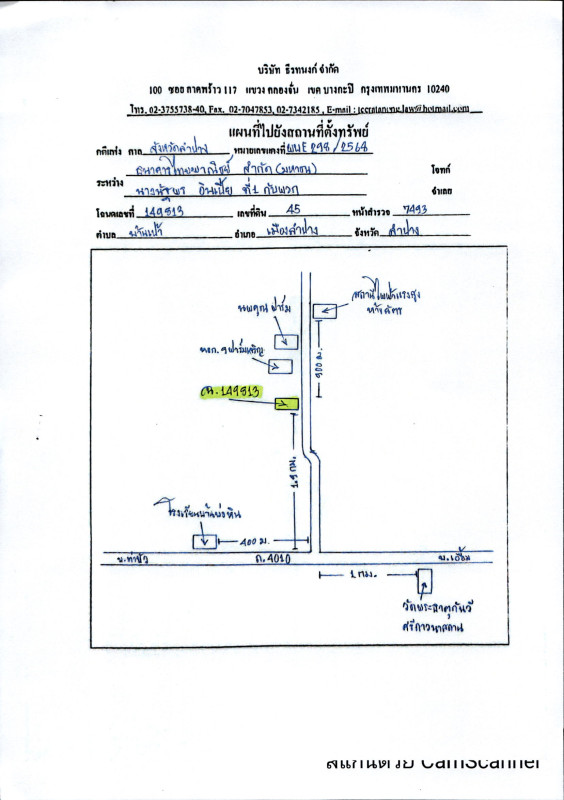 บริษัท ธีรทนงก์ จำกัด
100 ซอย ลาดพร้าว 117 แขวง คลองจั่น เขต บางกะปิ กรุงเทพมหานคร 10240
โทร. 02-3755738-40, Fax. 02-7047853, 02-7342185 , E-mail :
แผนที่ไปยังสถานที่ตั้งทรัพย์
คดีแพ่ง ศาล จังหวัดลำปาง หมายเลขแดงที่ ผบE 298 / 2568
ระหว่าง ธนาคารไทยพาณิชย์ จำกัด (มหาชน) โจทก์
ที่ 1 กับพวก จำเลย
โฉนดเลขที่ 149813 เลขที่ดิน 45 หน้าสำรวจ 7493
ตำบล บ้านเป้า อำเภอ เมืองลำปาง จังหวัด ลำปาง
สถานีไฟฟ้าแรงสูง
ห้างฉัตร
นพคุณ ฟาร์ม
หจก. ฟาร์มเจริญ
900 ม.
ฉ. 149813
1.9 กม.
400 ม.
บ.ท่าขัว
ถ.4010
บ.เอื้อม
1 กม.
วัดพระธาตุ
สแกนด้วย CamScanner